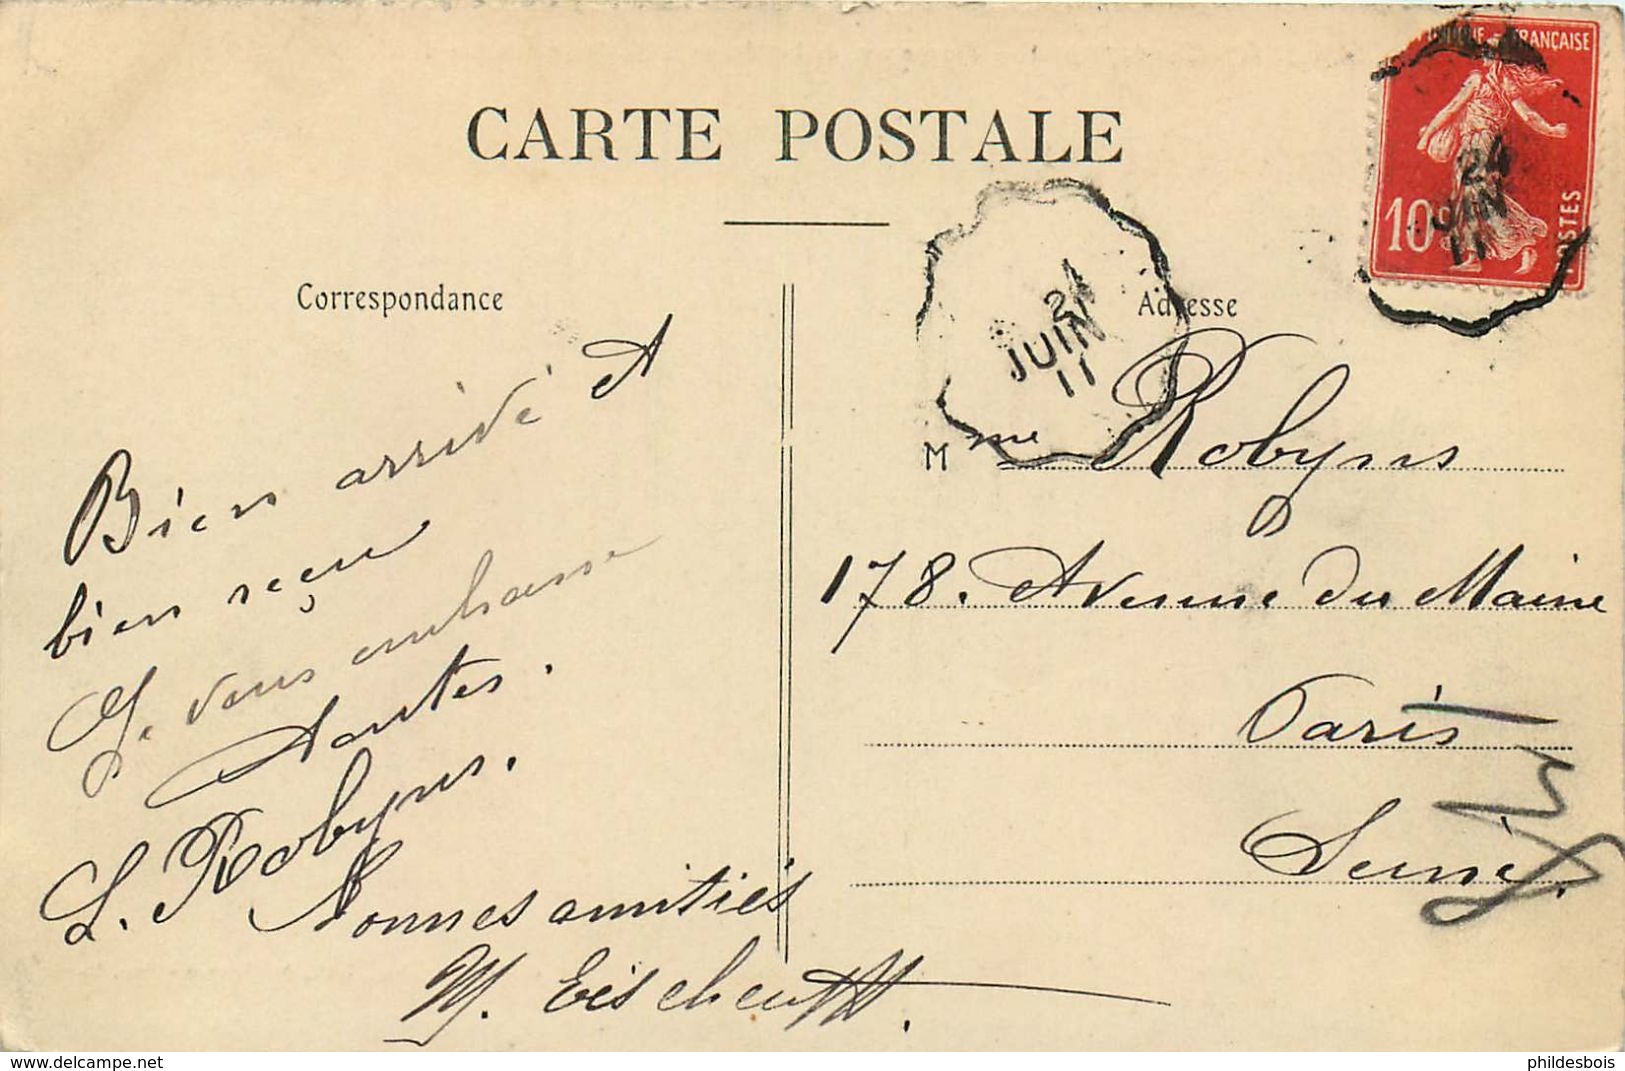 CARTE POSTALE
FRANÇAISE
10c
POSTES
24
JUIN
11
24
JUIN
11
Correspondance
Adresse
Bien arrivé et
bien reçu
Je vous embrasse
toutes.
L. Robyns.
Bonnes amitiés
M.
Mme Robyns
178. Avenue du Maine
Paris
Seine.
delcampe.net
phildesbois